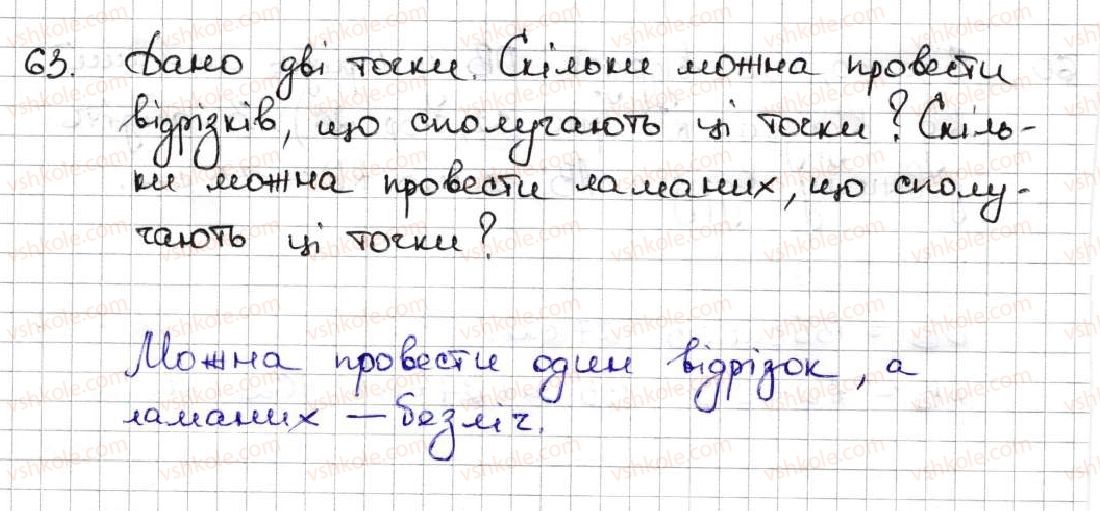 63. Дано дві точки. Скільки можна провести
відрізків, що сполучають ці точки? Скіль-
ки можна провести ламаних, що сполу-
чають ці точки?
Можна провести один відрізок, а
ламаних — безліч.